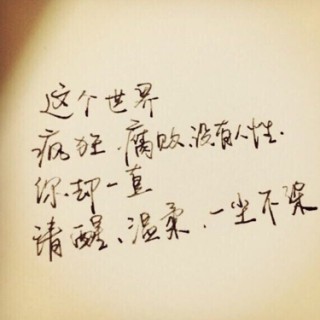 这个世界
疯狂、腐败、没有人性.
你.却一直
请醒、温柔、一尘不染